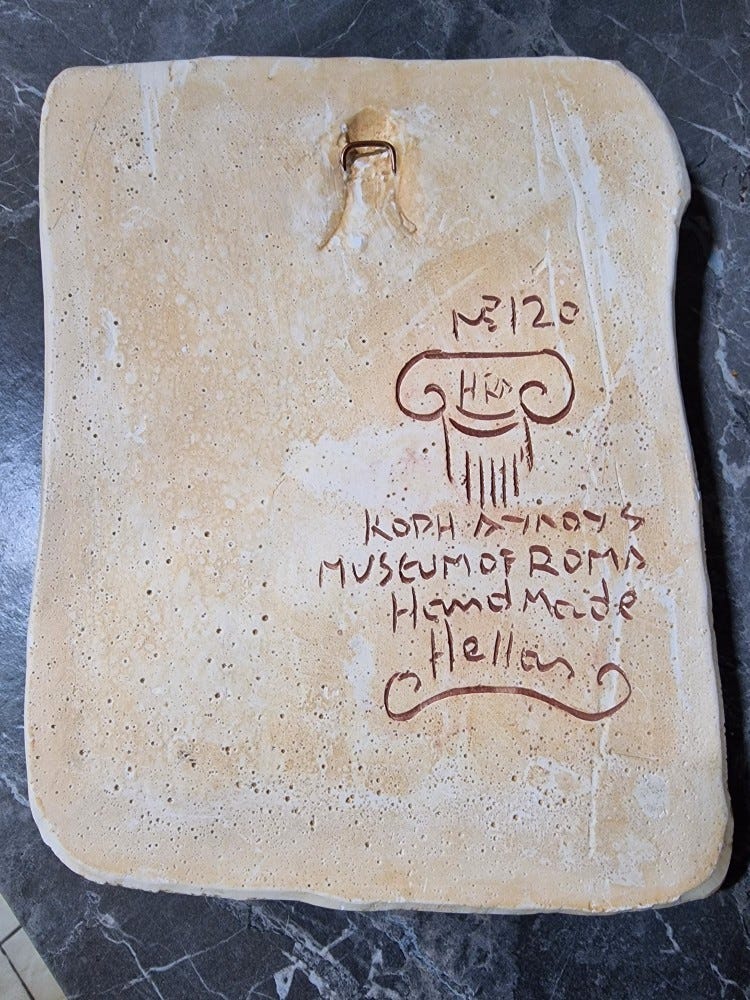 Nº 120
HRA
ΚΟΡΗ
MUSEUM OF ROMA
Hand Made
Hellas